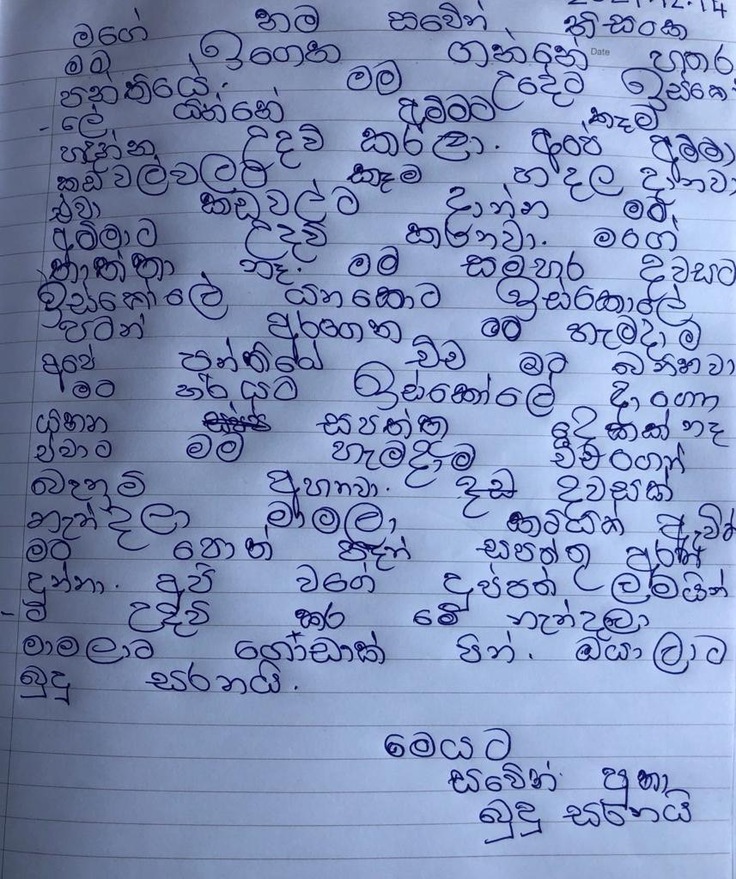 2021.12.14
මගේ නම සවෙන් නිසංක
මම ඉගෙන ගන්නේ Date හතර
පන්තියේ. මම උදේට ඉස්කෝ
-ලේ යන්නේ අම්මට කෑම
හදන්න උදව් කරලා. අපේ අම්මා
කඩවල්වලට කෑම හදල දානවා
ඒවා කඩවල්ට දාන්න මම
අම්මාට උදව් කරනවා. මගේ
තාත්තා නෑ. මම සමහර දවසට
ඉස්කෝලේ යනකොට ඉස්රකොලේ
පටන් අරගෙන මම හැමදාම
අපේ පන්තියේ ටීච මට බනිනවා
මට හරියට ඉස්කෝලේ දාගෙන
යන්න සපත්තු දෙකක් නෑ
ඒවාට මම හැමදාම ටීචගෙන්
බැනුම් අහනවා. දස දවසක්
නැන්දලා මාමලා කට්ටියක් ඇවිත්
මට පොත් සපත්තු අරන්
දුන්නා. අපි වගේ දුප්පත් ලමයින්
-ට උදව් කර මේ නැන්දලා
මාමලාට ගෝඩාක් පින්. ඔයාලාට
බුදු සරනයි.
මෙයට
සවෙන් පුතා
බුදු සරනයි